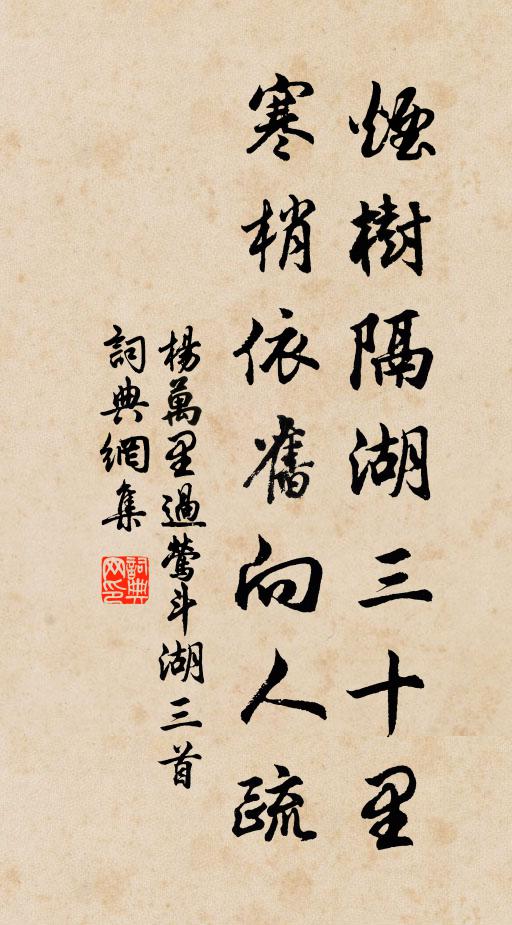 煙樹隔湖三十里
寒梢依舊向人疏
楊萬里過鶯斗湖三首
詞典網集
詞典网印